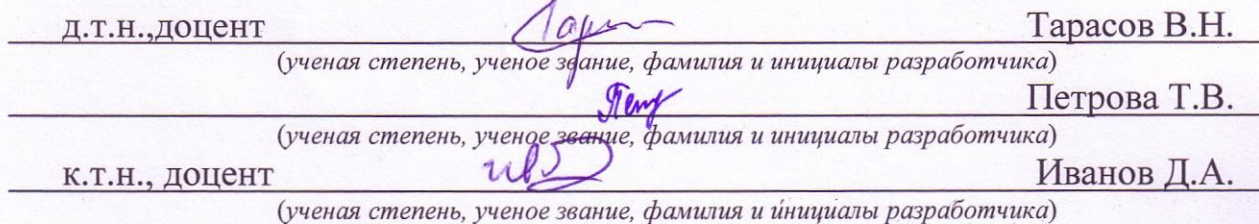 д.т.н.,доцент Тарасов В.Н.
(ученая степень, ученое звание, фамилия и инициалы разработчика)
Петрова Т.В.
(ученая степень, ученое звание, фамилия и инициалы разработчика)
к.т.н., доцент Иванов Д.А.
(ученая степень, ученое звание, фамилия и инициалы разработчика)